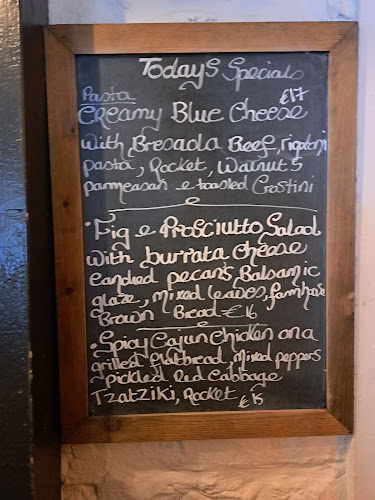 Todays Specials
Pasta €17
Creamy Blue Cheese
with Bresaola Beef, rigatoni
pasta, Rocket, Walnuts
parmeasan e toasted Crostini
• Fig e Prosciutto Salad
with burrata cheese
candied pecans, Balsamic
glaze, mixed leaves, farmhouse
Brown Bread - €16
• Spicy Cajun Chicken on a
grilled flatbread, mixed peppers
pickled Red Cabbage
Tzatziki, Rocket €15